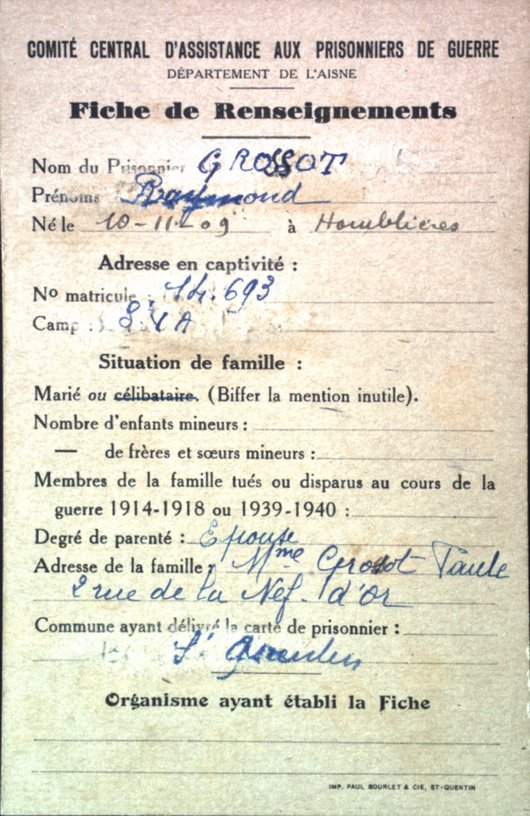 COMITÉ CENTRAL D'ASSISTANCE AUX PRISONNIERS DE GUERRE
DÉPARTEMENT DE L'AISNE
Fiche de Renseignements
Nom du Prisonnier GROSSOT
Prénoms Raymond
Né le 10-11-09 à Homblières
Adresse en captivité :
No matricule : 14.693
Camp :
Situation de famille :
Marié ou célibataire. (Biffer la mention inutile).
Nombre d'enfants mineurs :
— de frères et sœurs mineurs :
Membres de la famille tués ou disparus au cours de la
guerre 1914-1918 ou 1939-1940 :
Degré de parenté : Epouse
Adresse de la famille : Mme Grosot Paule
2 rue de la Nef. d'or
Commune ayant délivré la carte de prisonnier :
St Quentin
Organisme ayant établi la Fiche
IMP. PAUL BOURLET & CIE, ST-QUENTIN